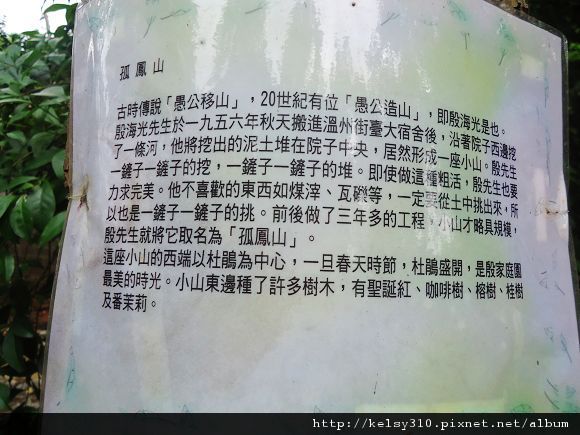 孤鳳山
古時傳說「愚公移山」，20世紀有位「愚公造山」，即殷海光是也。
殷海光先生於一九五六年秋天搬進溫州街臺大宿舍後，沿著院子西邊挖
了一條河，他將挖出的泥土堆在院子中央，居然形成一座小山。殷先生
一鏟子一鏟子的挖，一鏟子一鏟子的堆。即使做這種粗活，殷先生也要
力求完美。他不喜歡的東西如煤滓、瓦礫等，一定要從土中挑出來，所
以也是一鏟子一鏟子的挑。前後做了三年多的工程，小山才略具規模，
殷先生就將它取名為「孤鳳山」。
這座小山的西端以杜鵑為中心，一旦春天時節，杜鵑盛開，是殷家庭園
最美的時光。小山東邊種了許多樹木，有聖誕紅、咖啡樹、榕樹、桂樹
及番茉莉。
http://kelsy310.pixnet.net/album